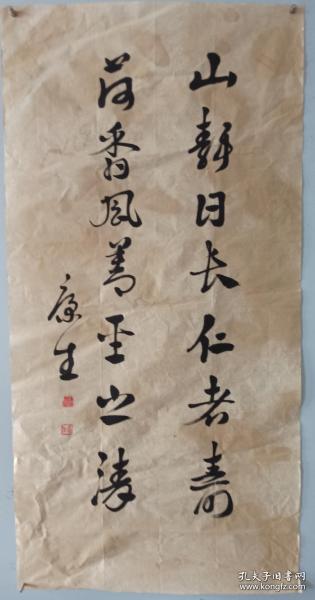 山静日长仁者寿
荷香风善圣之清
康生
孔夫子旧书网